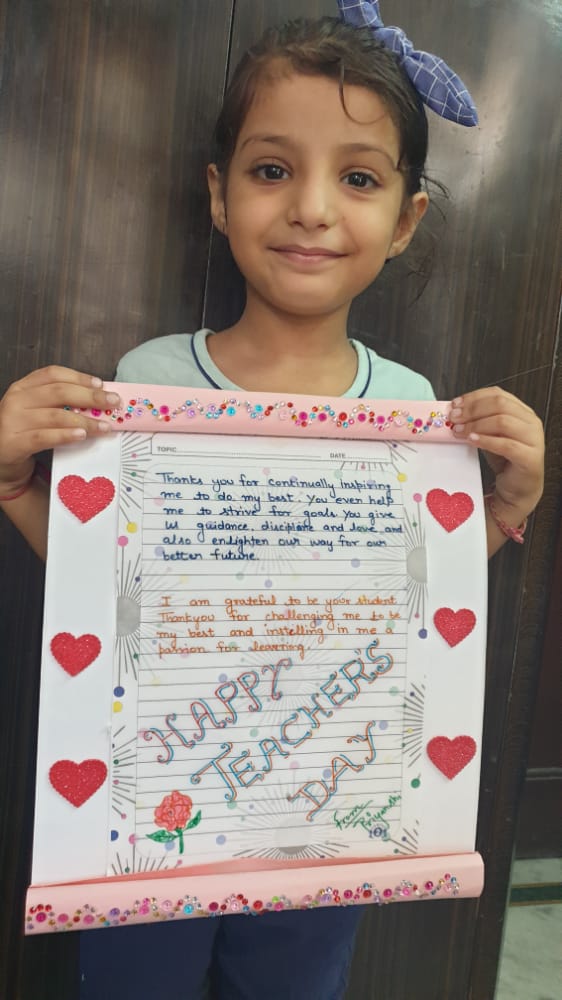 TOPIC DATE
Thanks you for continually inspiring
me to do my best. You even help
me to strive for goals. You give
us guidance, discipline and love and
also enlighten our way for our
better future.
I am grateful to be your student
Thankyou for challenging me to be
my best and instelling in me a
passion for learning.
HAPPY
TEACHER'S
DAY
From